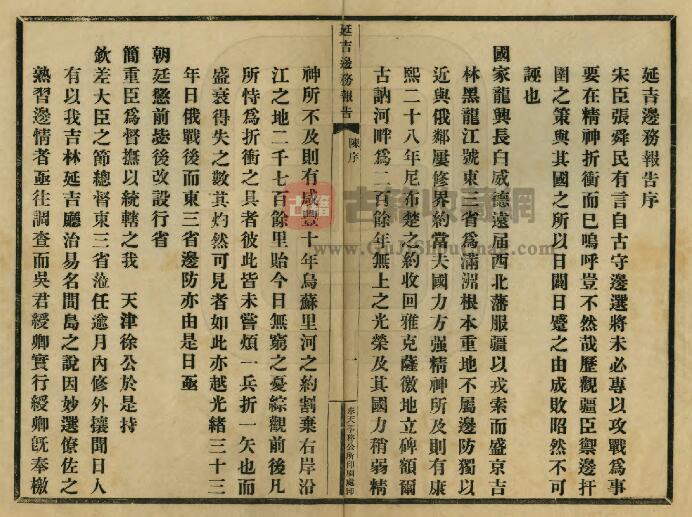 延吉邊務報告序
宋臣張舜民有言自古守邊選將未必專以攻戰爲事
要在精神折衝而已嗚呼豈不然哉歷觀疆臣禦邊扞
圉之策與其國之所以日闢日蹙之由成敗昭然不可
誣也
國家龍興長白威德遠届西北藩服疆以戎索而盛京吉
林黑龍江號東三省爲滿洲根本重地不屬邊防獨以
近與俄鄰屢修界約當夫國力方强精神所及則有康
熙二十八年尼布楚之約收回雅克薩徼地立碑額爾
古訥河畔爲二百餘年無上之光榮及其國力稍弱精
延吉邊務報告
陳序
一
奉天學務公所印刷處印
神所不及則有咸豐十年烏蘇里河之約割棄右岸沿
江之地二千七百餘里貽今日無窮之憂綜觀前後凡
所恃爲折衝之具者彼此皆未嘗煩一兵折一矢也而
盛衰得失之數其灼然可見者如此亦越光緒三十三
年日俄戰後而東三省邊防亦由是日亟
朝廷懲前毖後改設行省
簡重臣爲督撫以統轄之我 天津徐公於是持
欽差大臣之節總督東三省涖任逾月內修外攘聞日人
有以我吉林延吉廳治易名間島之說因妙選僚佐之
熟習邊情者亟往調查而吳君綬卿實行綬卿旣奉檄
古籍收藏網
www.GuJiShouCang.com